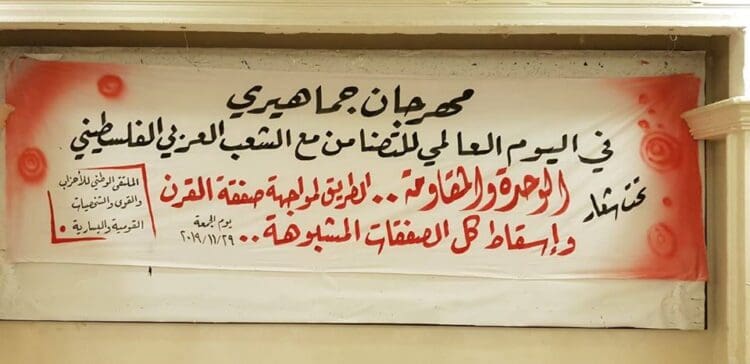 مهرجان جماهيري
في اليوم العالمي للتضامن مع الشعب العربي الفلسطيني
تحت شعار
الوحدة والمقاومة .. الطريق لمواجهة صفقة القرن
وإسقاط كل الصفقات المشبوهة ..
يوم الجمعة
٢٠١٩/١١/٢٩
الملتقى الوطني للأحزاب
والقوى والشخصيات
القومية واليسارية